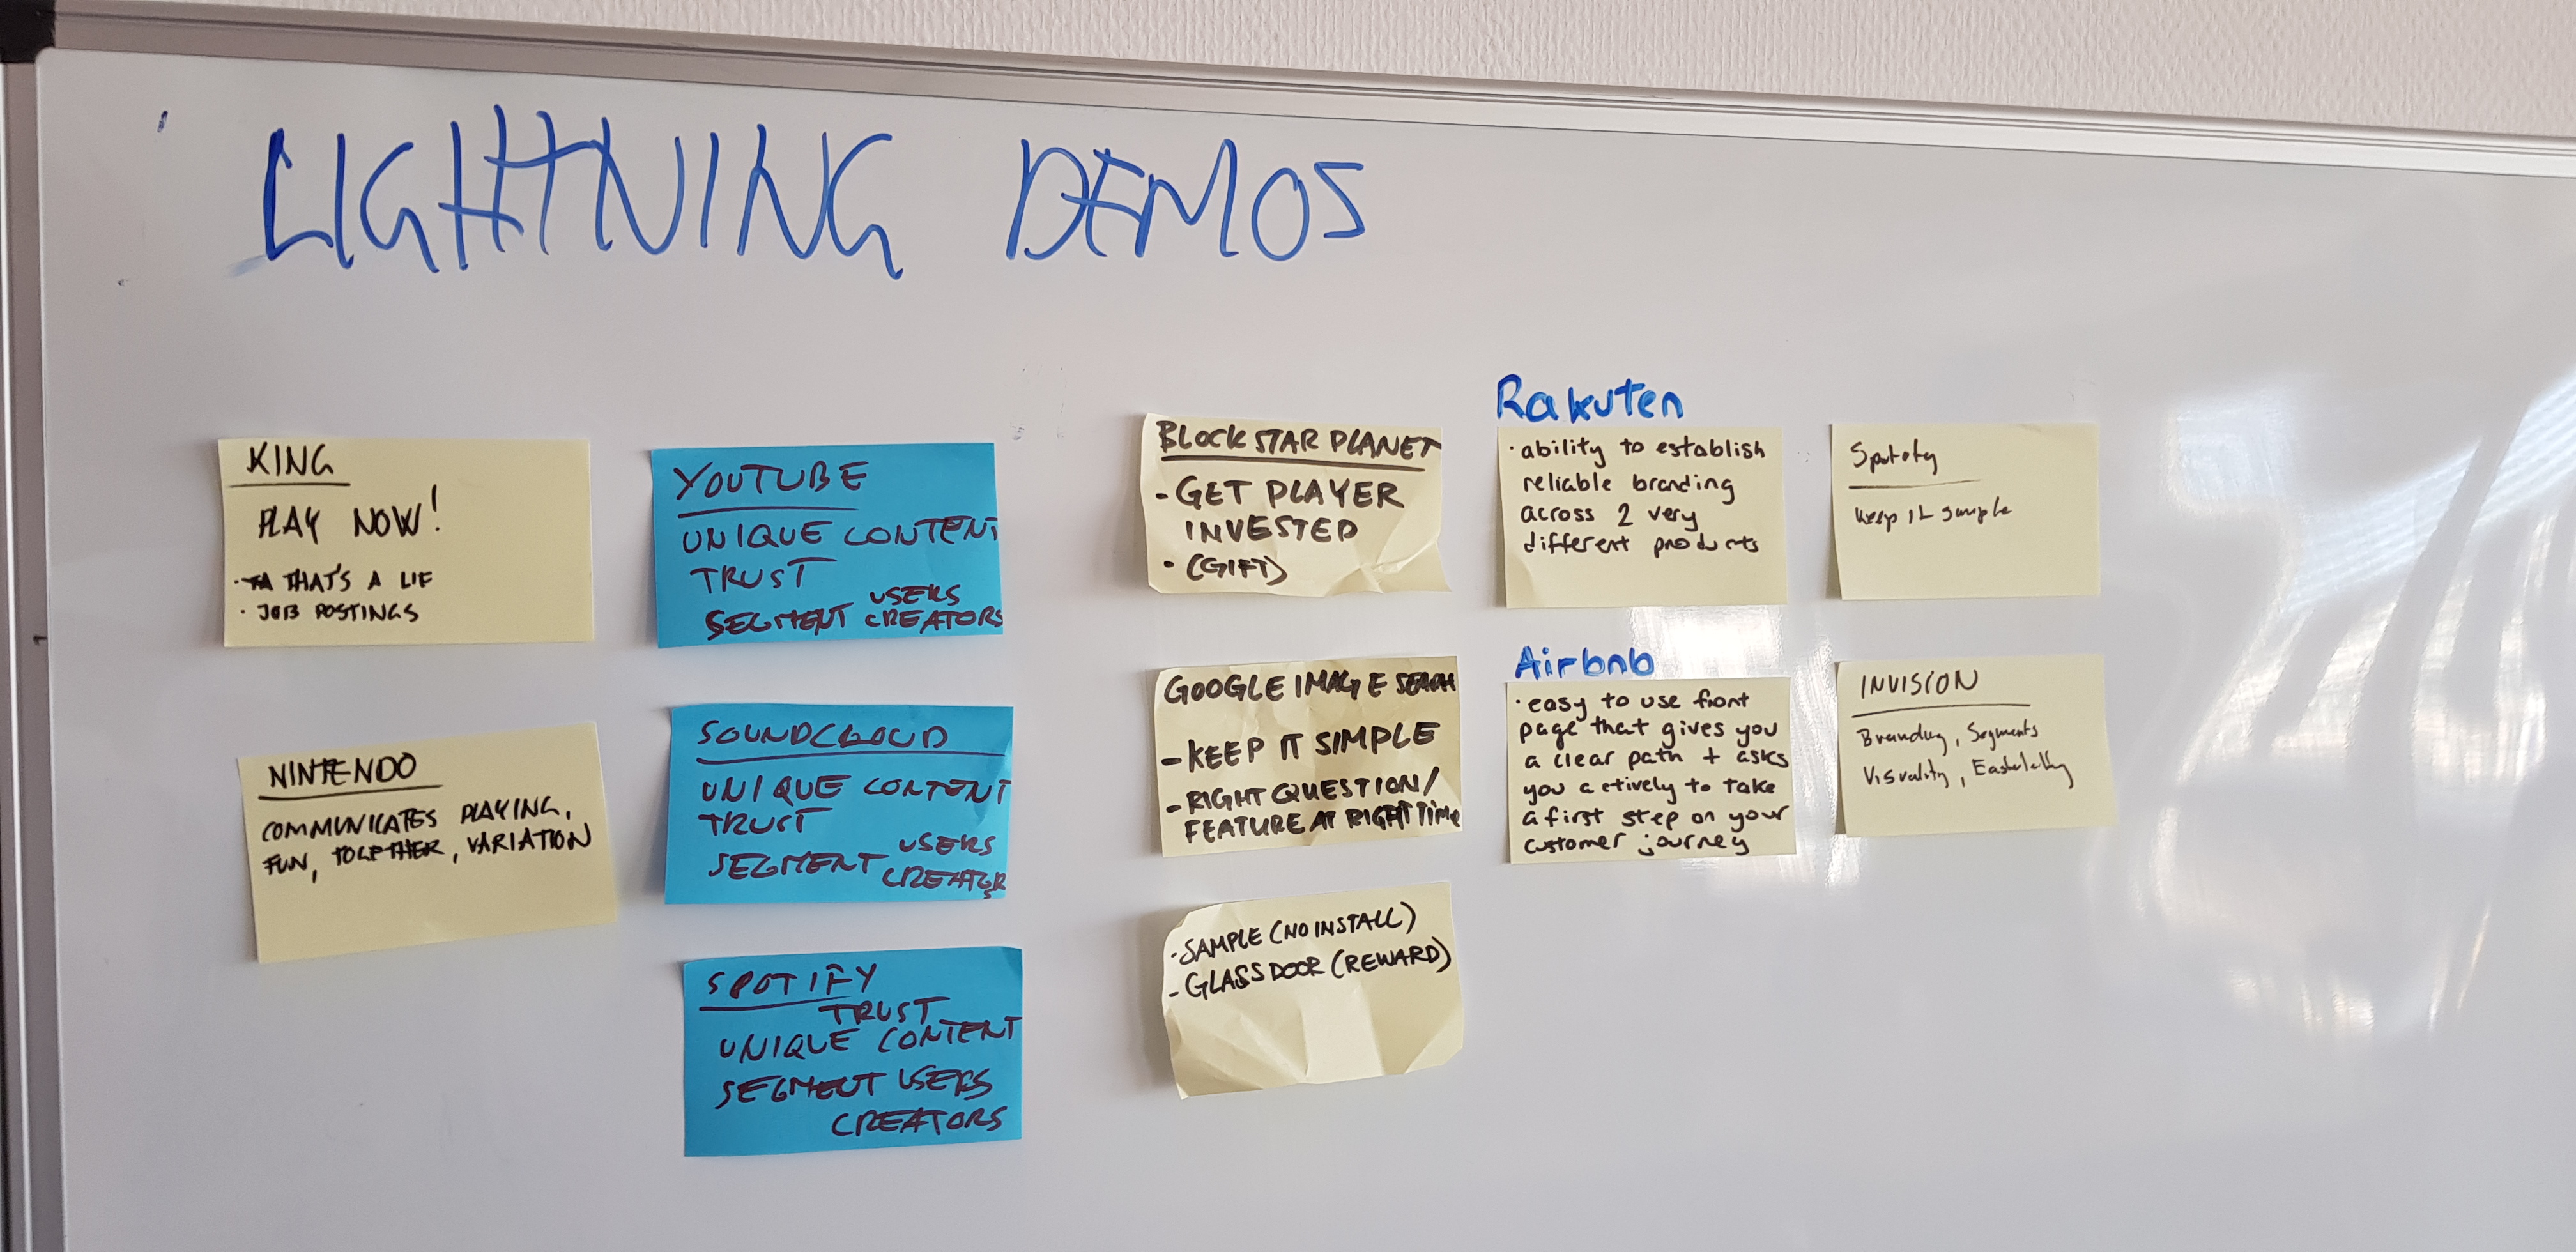 LIGHTNING DEMOS
KING
PLAY NOW!
· THAT'S A LIE
· JOB POSTINGS
NINTENDO
COMMUNICATES PLAYING,
FUN, TOGETHER, VARIATION
YOUTUBE
UNIQUE CONTENT
TRUST
SEGMENT USERS
CREATORS
SOUNDCLOUD
UNIQUE CONTENT
TRUST
SEGMENT USERS
CREATORS
SPOTIFY
TRUST
UNIQUE CONTENT
SEGMENT USERS
CREATORS
BLOCKSTAR PLANET
- GET PLAYER
INVESTED
· (GIFT)
GOOGLE IMAGE SEARCH
- KEEP IT SIMPLE
- RIGHT QUESTION/
FEATURE AT RIGHT TIME
· SAMPLE (NO INSTALL)
- GLASSDOOR (REWARD)
Rakuten
· ability to establish
reliable branding
across 2 very
different products
Airbnb
· easy to use front
page that gives you
a clear path + asks
you actively to take
a first step on your
customer journey
keep it simple
INVISION
Branding, Segments